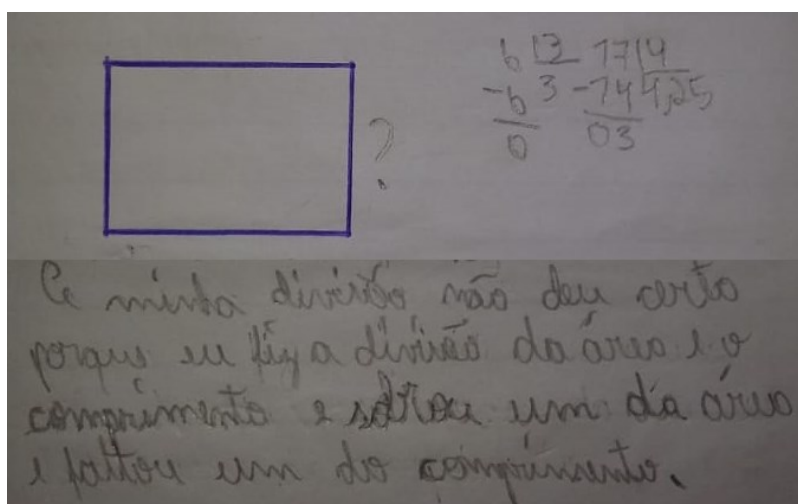 ?
6 |2 17 |4
-6 3 -14 4,25
0 03
A minha divisão não deu certo
porque eu fiz a divisão da área e o
comprimento e sobrou um da área
e faltou um do comprimento.